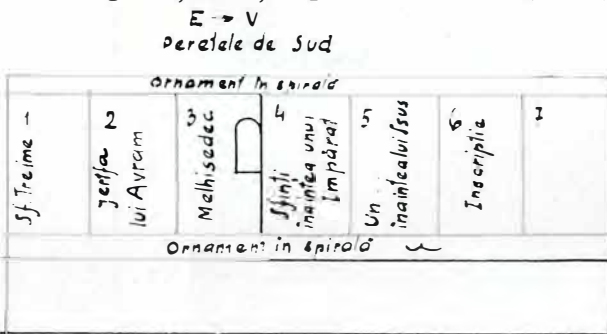 E → V
Peretele de Sud
Ornament în spirală
1
Sf. Treime -
2
Jertfa
lui Avram
3
Melhisedec
4
Sfinți
înaintea unui
Impărat
5
Un
înaintealui Isus
6
Inscriptie
7
Ornament in spirală